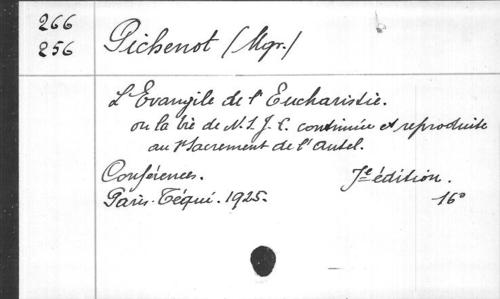 266
256
Pichenot (Mgr.)
L'Evangile de l'Eucharistie.
ou la vie de N.S.J.C. continuée et reproduite
au St Sacrement de l'autel.
Conférences. 7e édition.
Paris. Téqui. 1925. 16°